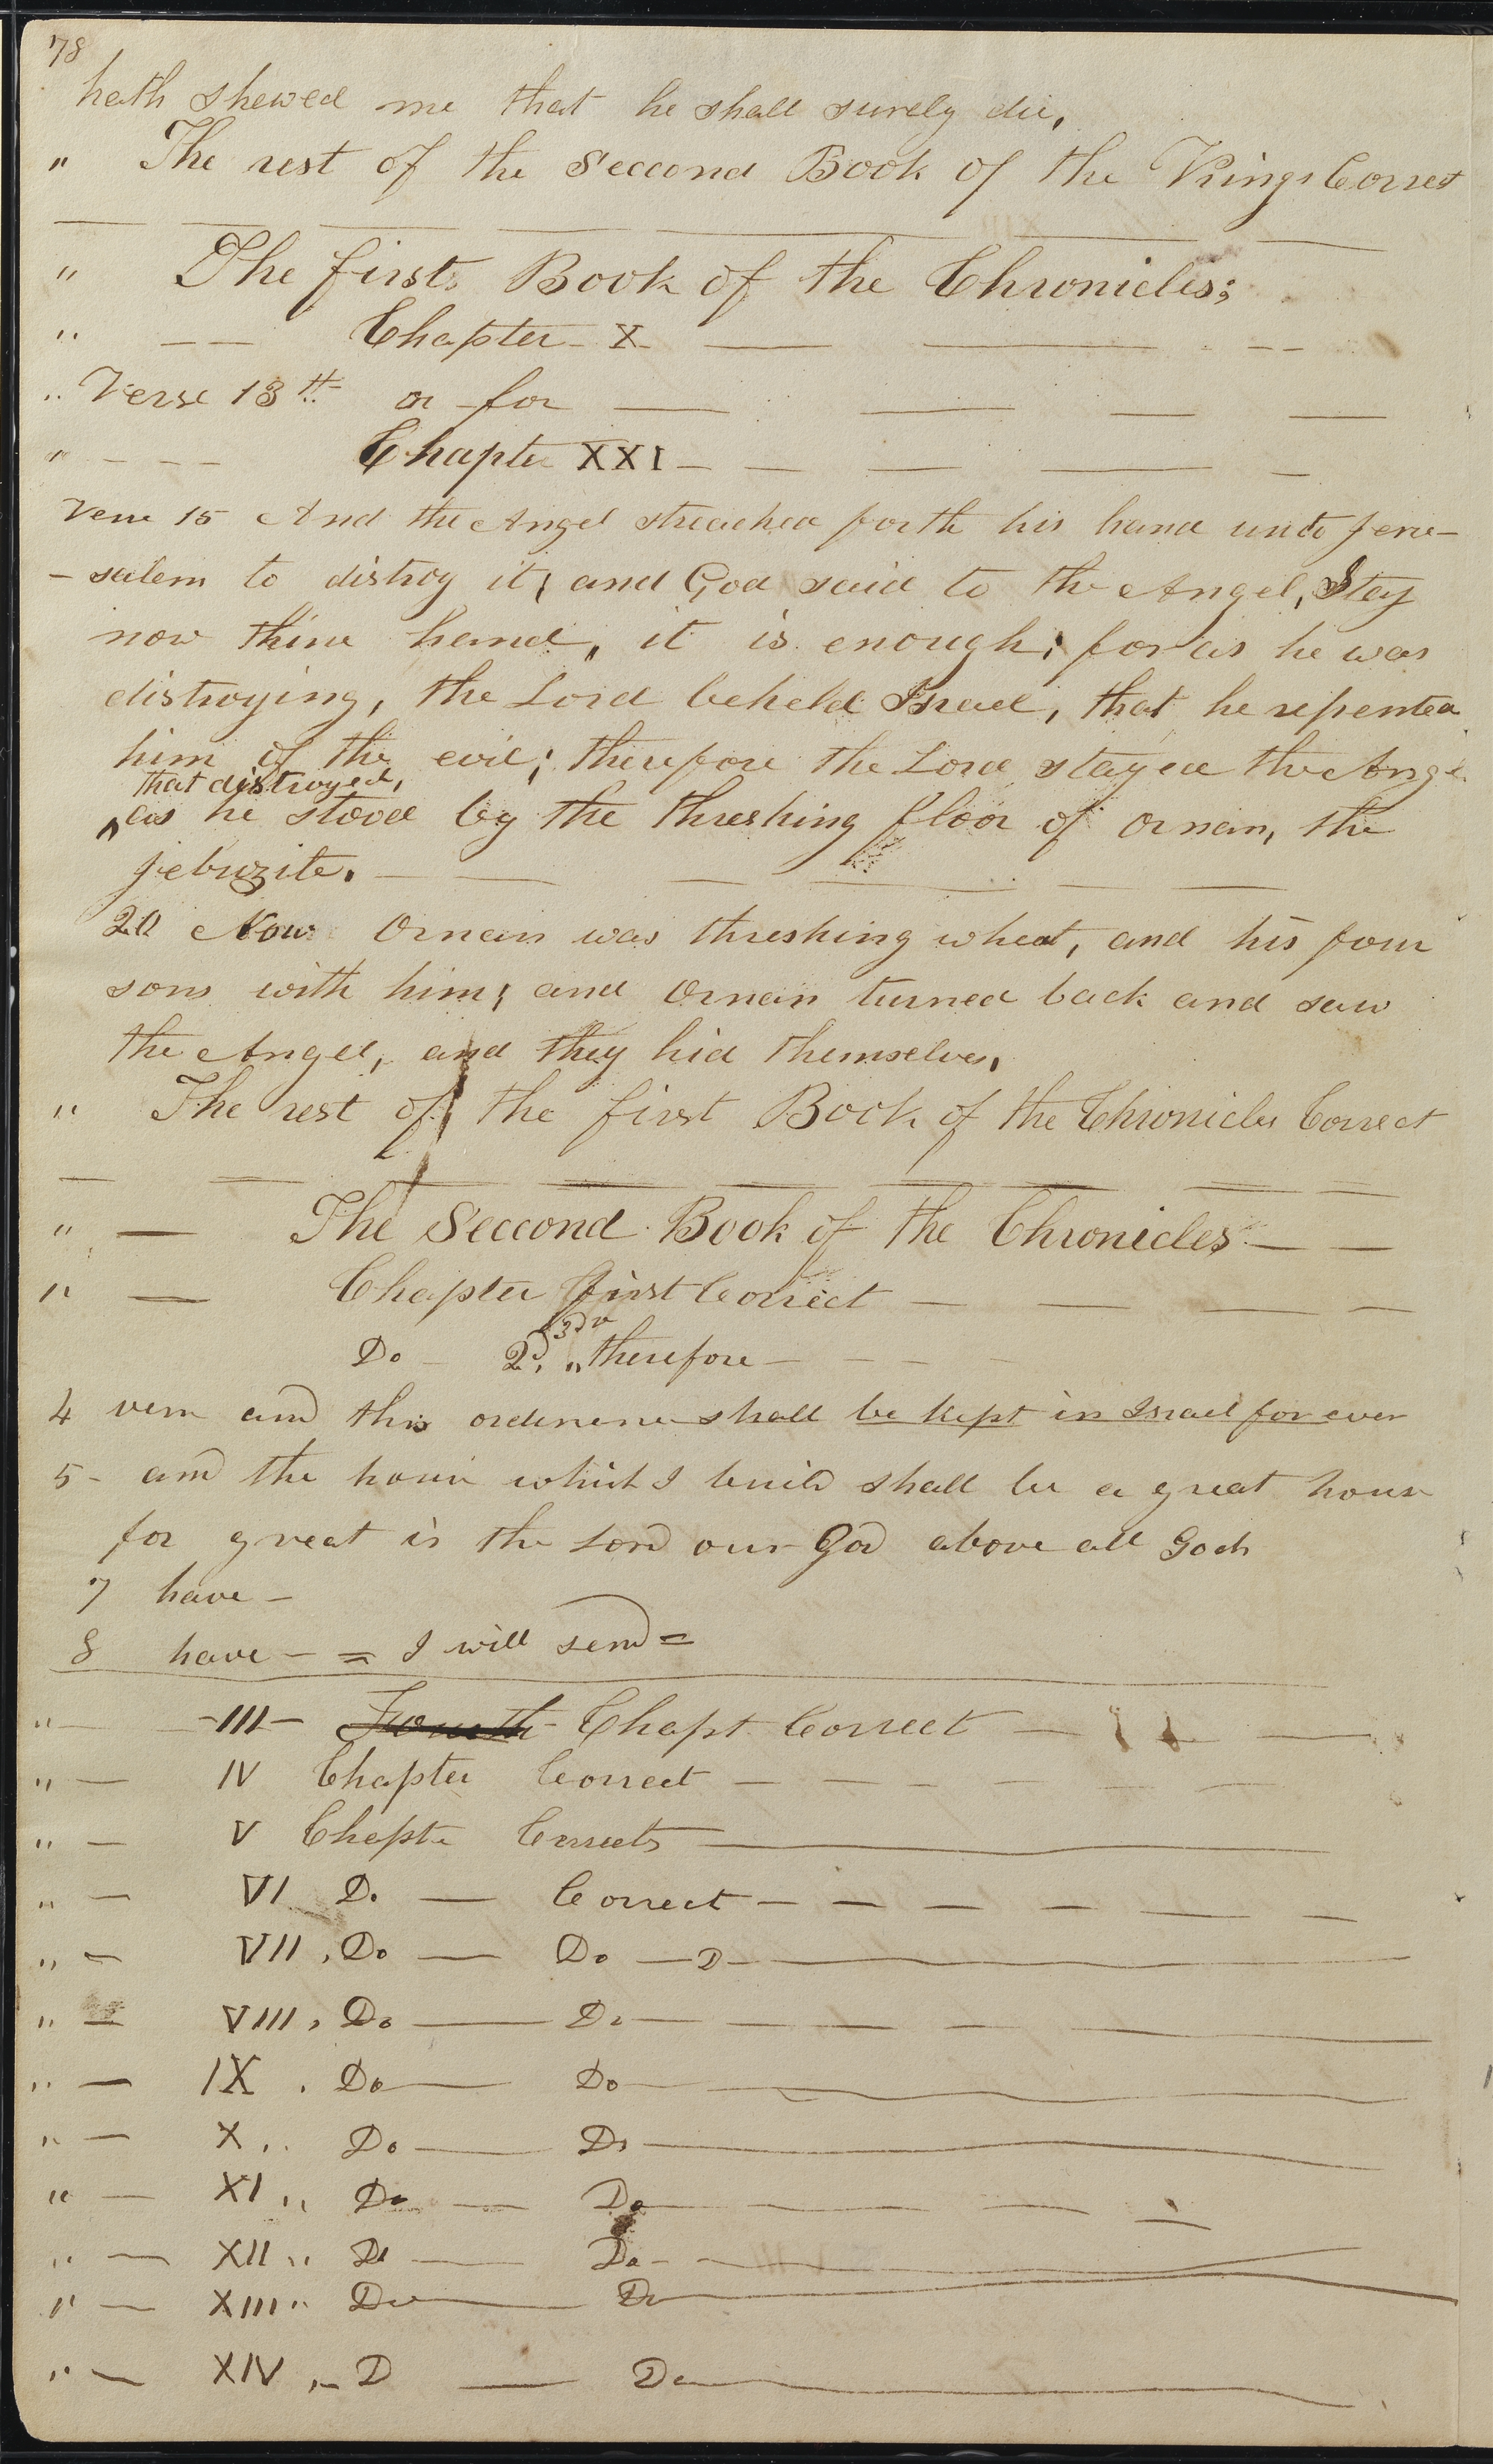 78
hath shewed me that he shall surely die,
" The rest of the Seccond Book of the Kings Correct
" The first Book of the Chronicles;
" — — Chapter X — — — —
" Verse 13th or for — — — —
" - - - Chapter XXI — — — — —
Verse 15 And the Angel streached forth his hand unto Jeru-
- salem to distroy it; and God said to the Angel, Stay
now thine hand, it is enough; for as he was
distroying, the Lord beheld Israel, that he repented
him of the evil; therefore the Lord stayed the Angel
that distroyed,
^as he stood by the threshing floor of ornan, the
jebuzite. — — — — — —
20 Now Ornan was threshing wheat, and his four
sons with him; and Ornan turned back and saw
the Angel, and they hid themselves,
" The rest of the first Book of the Chronicles Correct
" — The Seccond Book of the Chronicles — —
" — Chapter first Correct — — — —
Do - 2d. 3d v " therefore - - - -
4 vers and this ordinence shall be kept in Israel for ever
5 - and the house which I build shall be a great house
for great is the Lord our God above all Gods
7 have -
8 have - = I will send =
" — -III- Fourth Chapt Correct — —
" — IV Chapter Correct — - - - - -
" — V Chapte Corrects —
" — VI Do — Correct - - - - - -
" - VII , Do — Do — D —
" — VIII , Do — Do — — — — —
" — IX . Do — Do —
" — X .. Do — Do —
" — XI ,, Do — Do — — — —
" — XII ,, Do — Do - —
" — XIII ,, Do — Do —
" — XIV ,- D — Do —